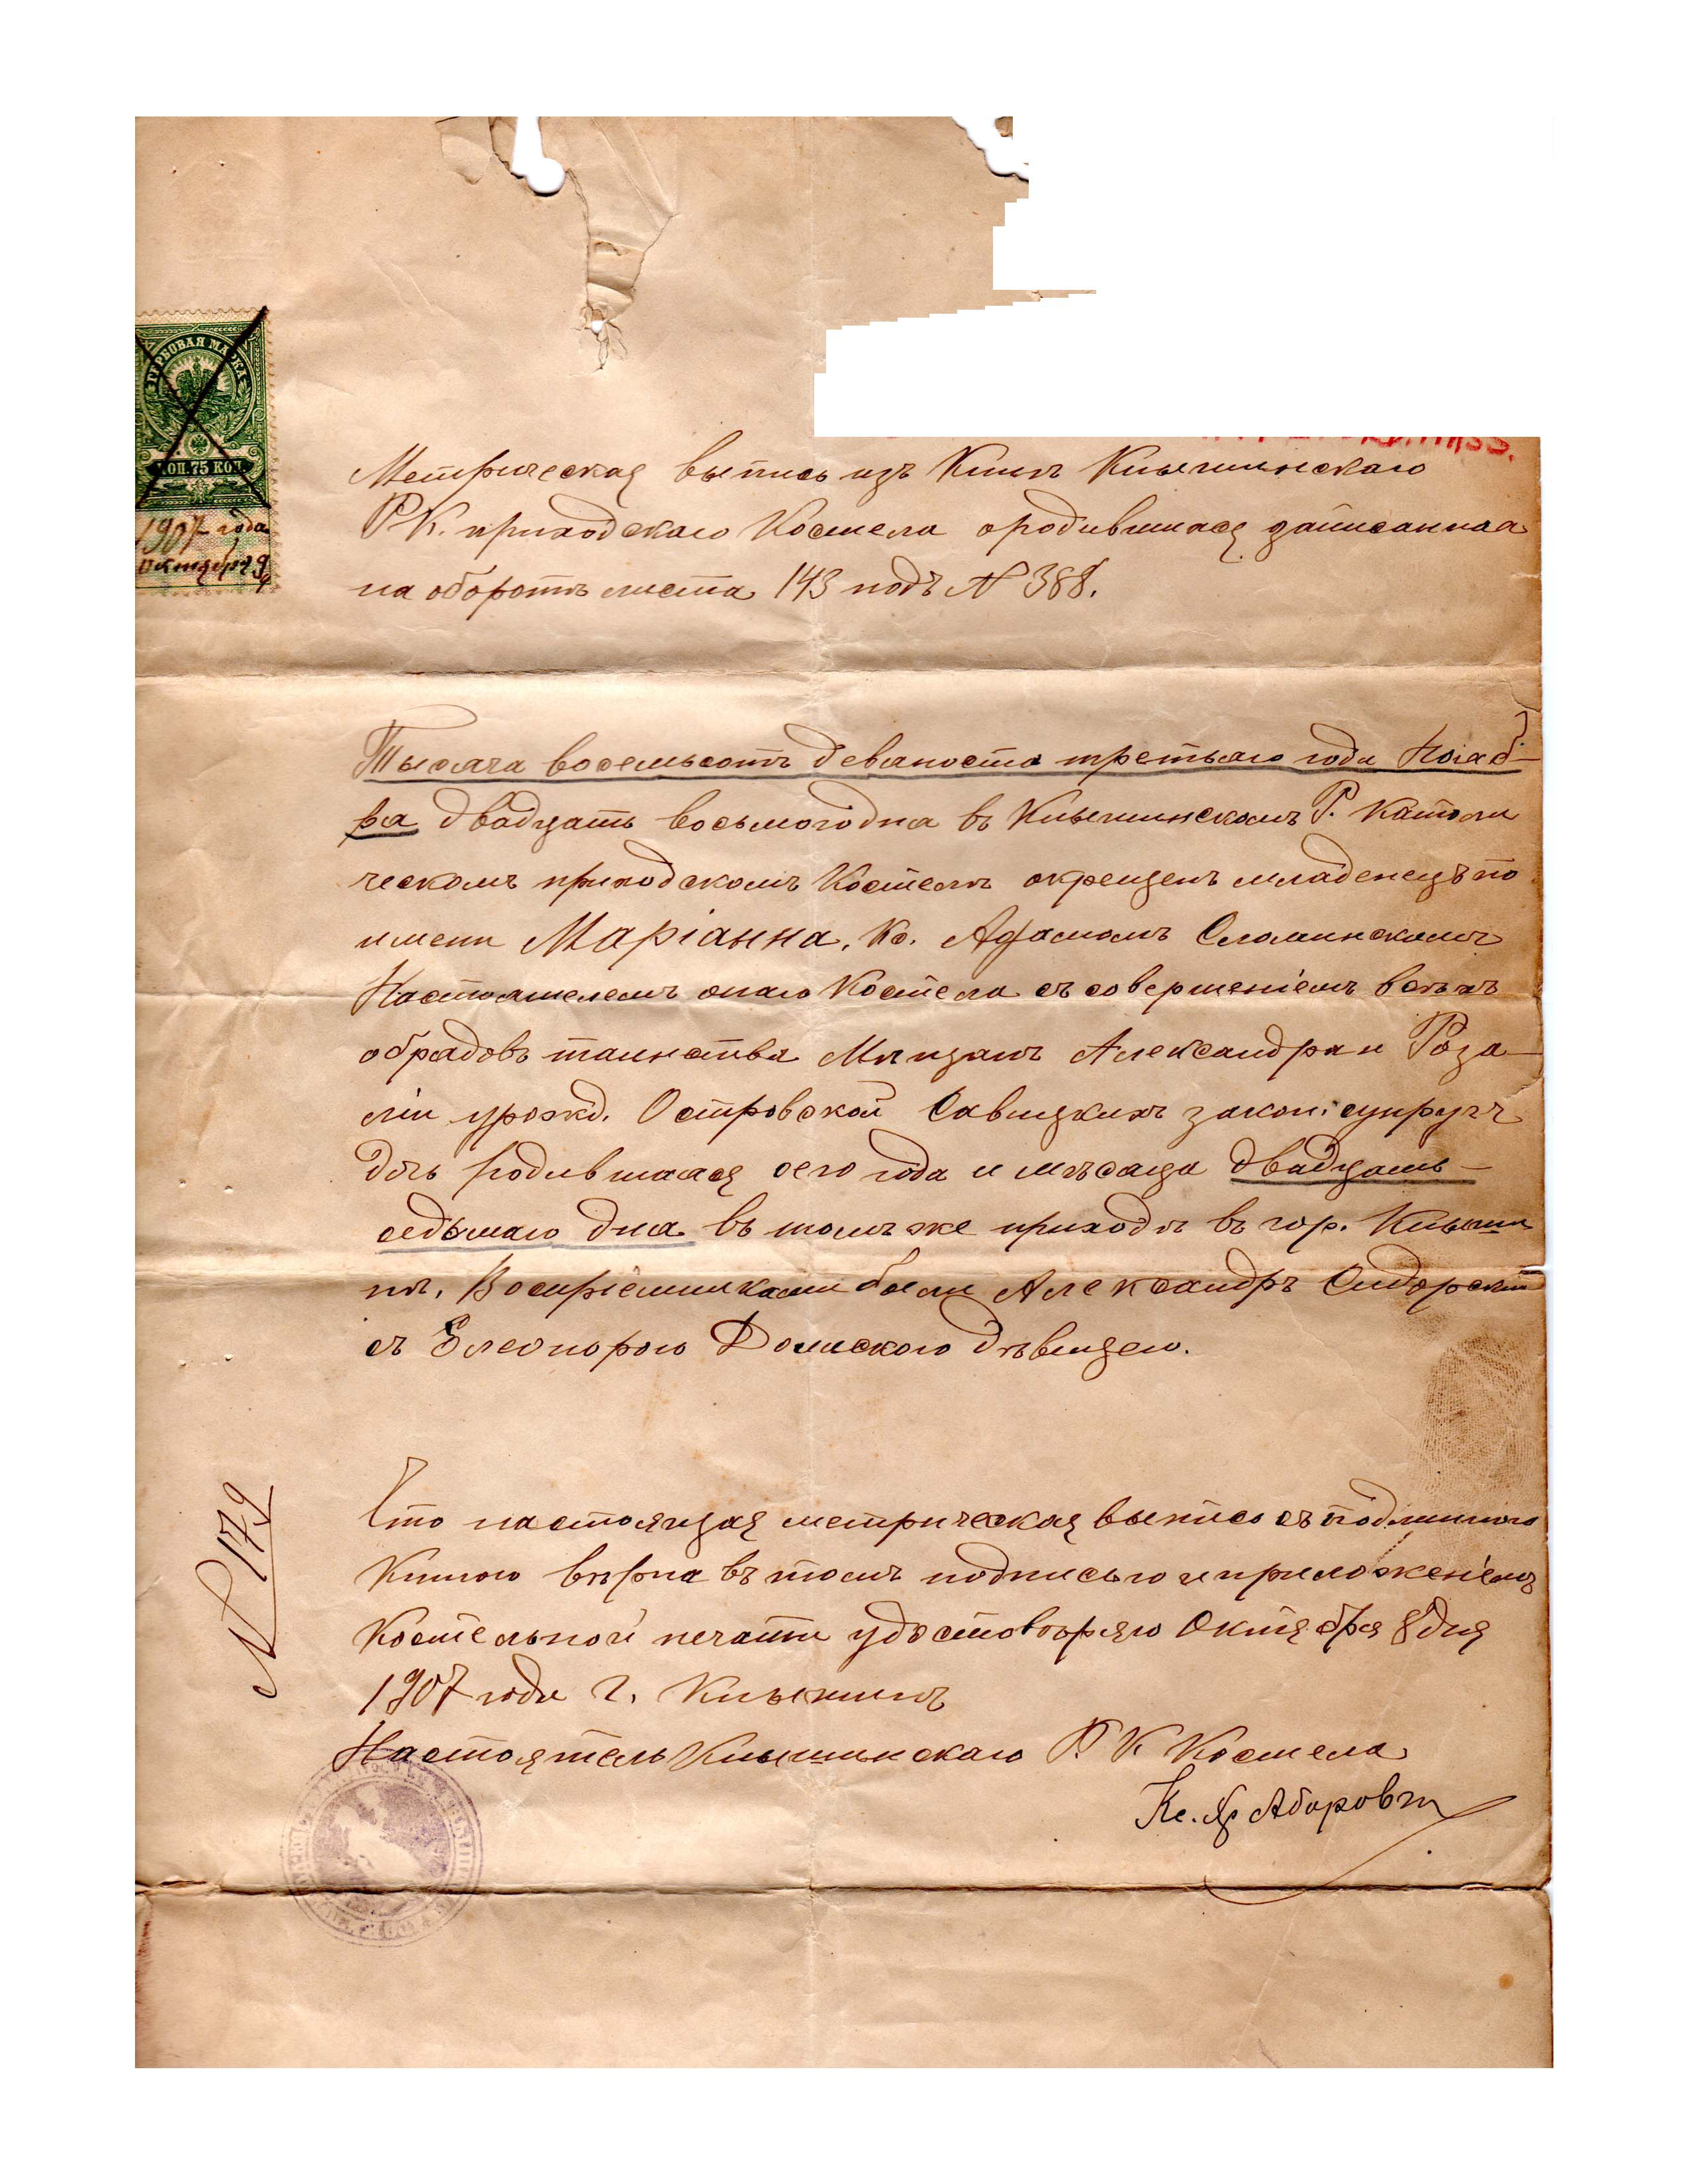 ГЕРБОВАЯ МАРКА
КОП. 75 КОП.
1907 года
Октября 9
Метрическая выпись изъ Книгъ Кнышинскаго
Р К. приходскаго Костела о родившихся записанная
на оборотѣ листа 143 подъ N 388.
Тысяча восемьсотъ девяноста третьяго года Нояб-
ря двадцать восьмого дня въ Кнышинскомъ Р. Католи
ческомъ приходскомъ Костелѣ окрещенъ младенецъ по
имени Маріанна, Кс. Адамомъ Сломинскимъ
Настоятелемъ онаго Костела съ совершеніемъ всѣхъ
обрядовъ таинства Мѣщанъ Александра и Роза-
ліи урожд. Островской Савицкихъ закон: супругъ
дочь родившаяся сего года и мѣсяца двадцать-
седьмаго дня въ томъ же приходѣ въ гор. Кныши
нѣ. Воспріемниками были Александръ Сидорскій
съ Елеонорою Домскою дѣвицею.
Что настоящая метрическая выпись съ подлинною
Книгою вѣрна въ томъ подписью и приложеніемъ
Костельной печати удостовѣряю Октября 8 дня
1907 года Г. Кнышинъ
Настоятель Кнышинскаго Р. К Костела
Кс.
N 179